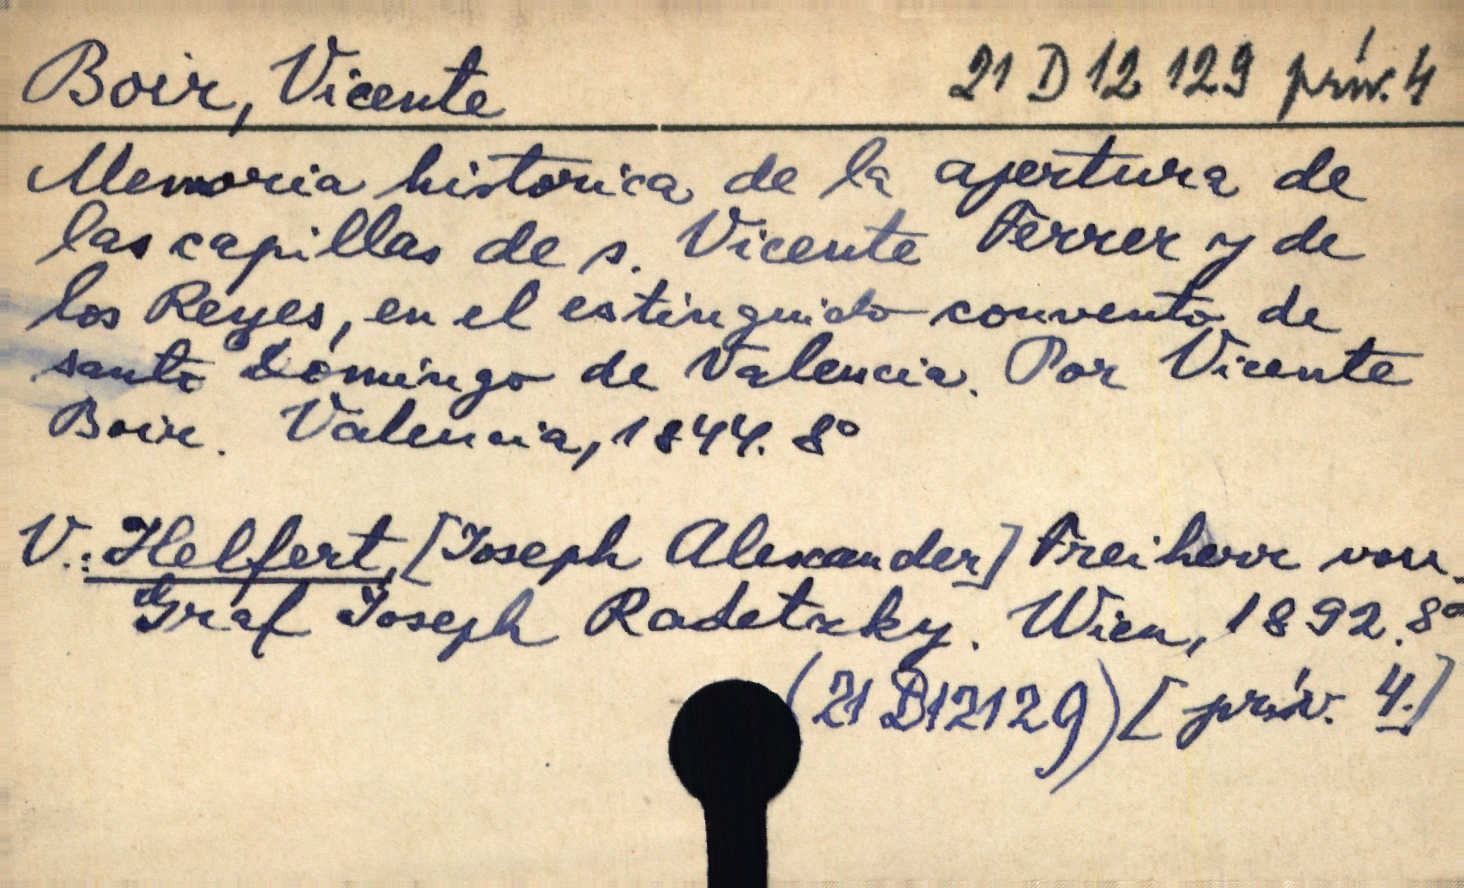 Boix, Vicente 21 D 12 129 přív. 4
Memoria historica de la apertura de
las capillas de s. Vicente Ferrer y de
los Reyes, en el estinguido convento de
santo Domingo de Valencia. Por Vicente
Boix. Valencia, 1844. 8°
V.: Helfert, [Joseph Alexander] Freiherr von.
Graf Joseph Radetzky. Wien, 1892. 8°
(21 D12129) [přív. 4.]